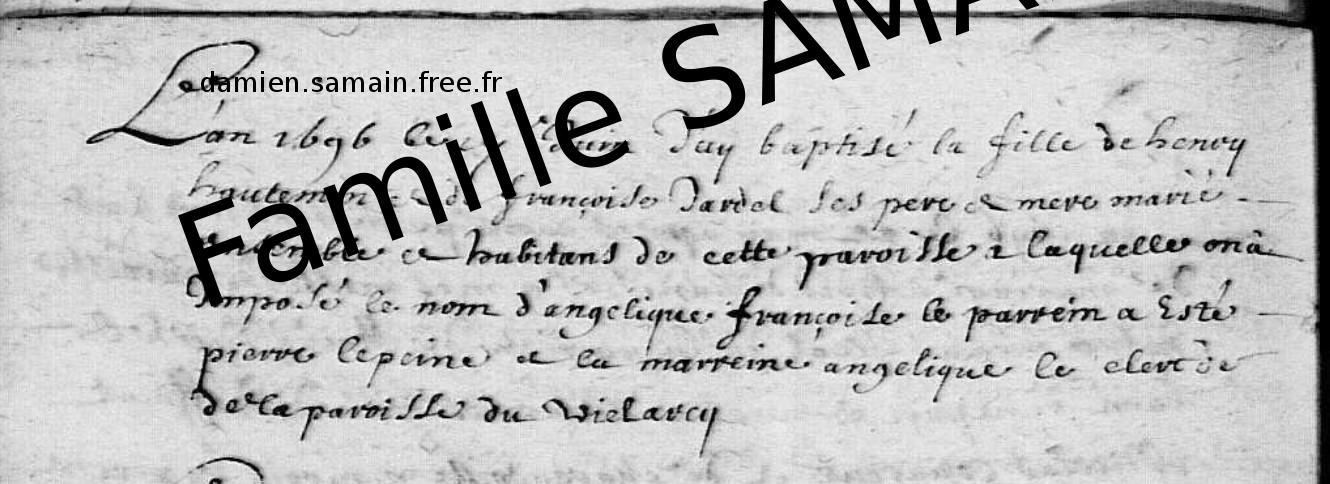 damien.samain.free.fr
Famille SAMA
L'an 1696 le Juin J'ay baptisé la fille de henry
hautement et de françoise Jardel ses pere et mere marié
Ensemble et habitans de cette paroisse a laquelle on a
Imposé le nom d'angelique françoise le parrein a Esté
pierre lepeine et la marreine angelique le clerc de
de la paroisse du vielarcy